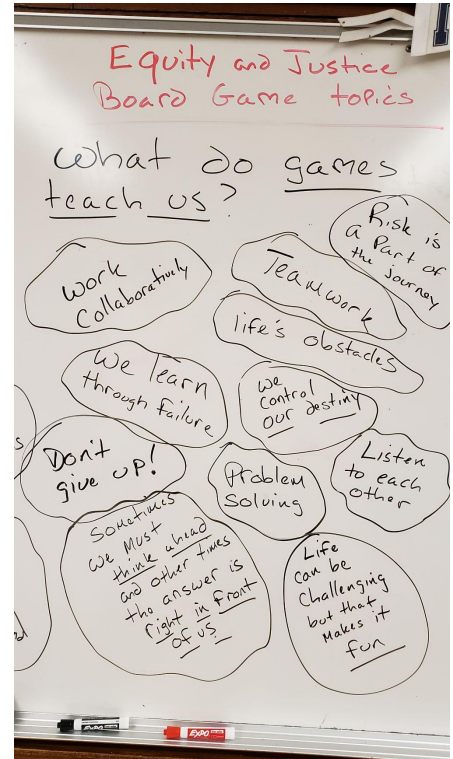 Equity and Justice
Board Game topics
What do games
teach us?
Risk is
a Part of
the journey
Work
Collaboratively
Teamwork
life's obstacles
We learn
through failure
We
control
our destiny
Don't
give up!
Problem
Solving
Listen
to each
other
Sometimes
we Must
think ahead
and other times
the answer is
right in front
of us
Life
can be
Challenging
but that
Makes it
fun
EXPO
EXPO